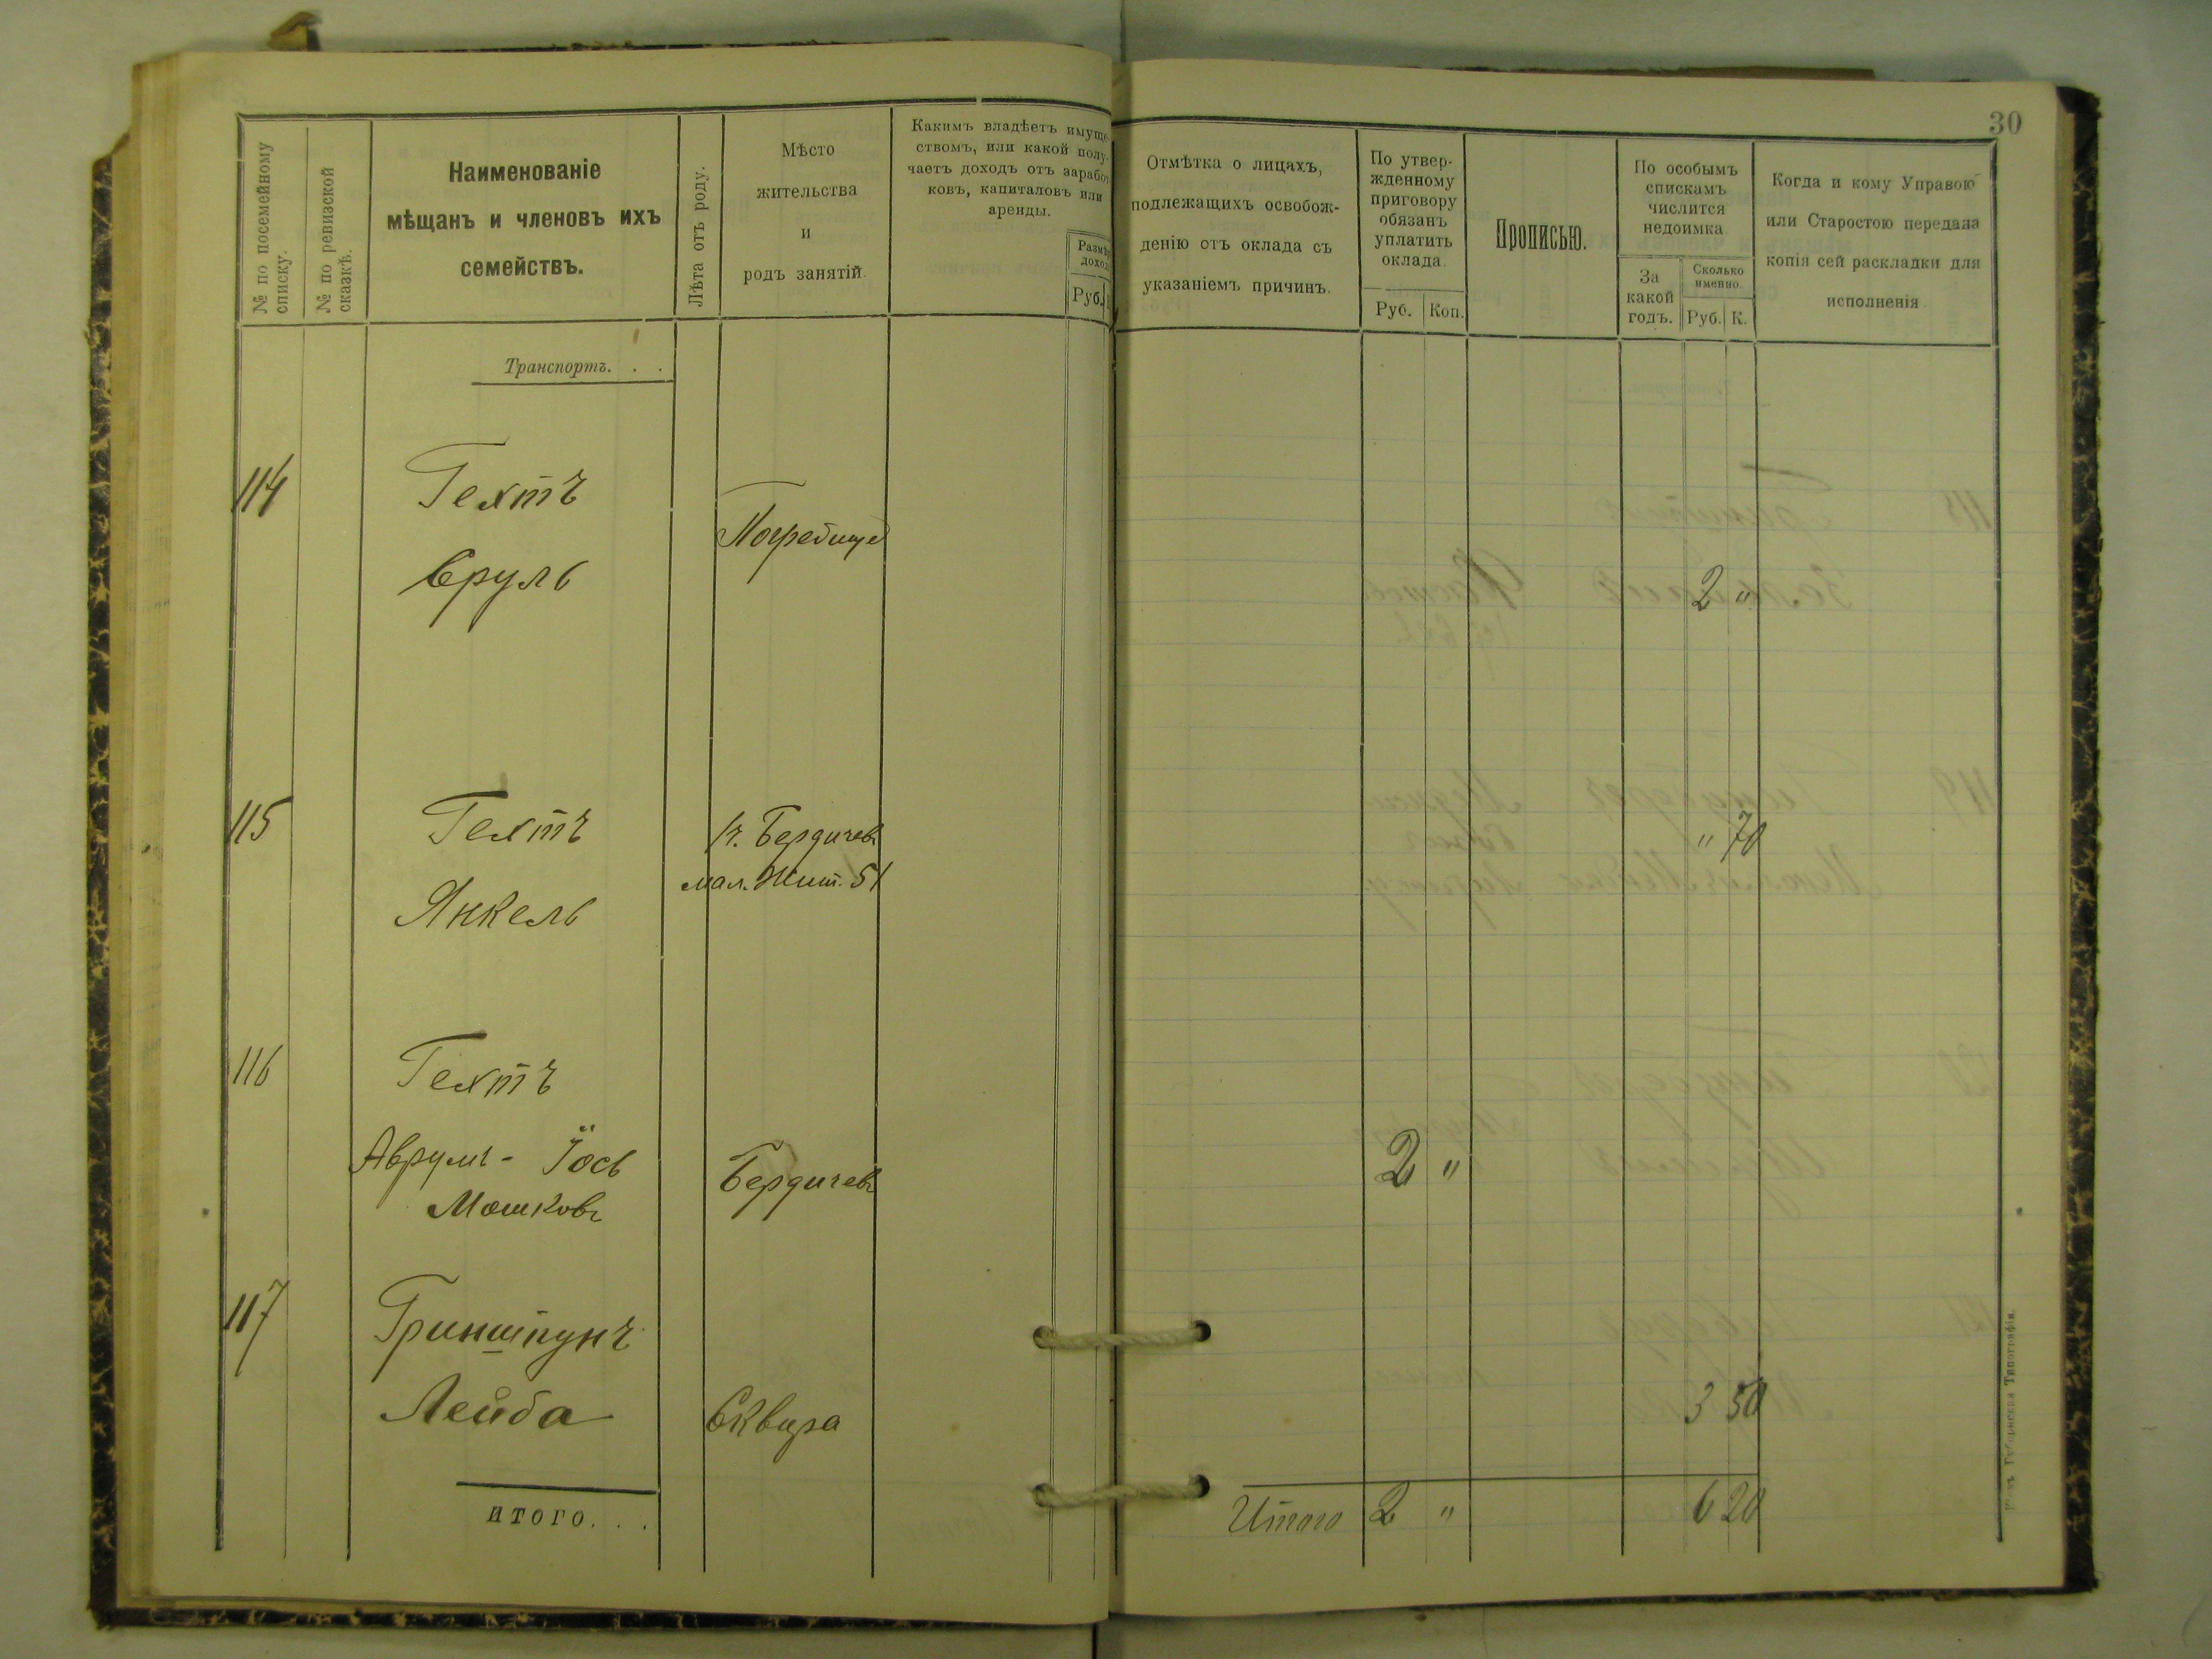 30
№ по посемейному
списку.
№ по ревизской
сказкѣ.
Наименованіе
мѣщанъ и членовъ ихъ
семействъ.
Лѣта отъ роду.
Мѣсто
жительства
и
родъ занятій.
Какимъ владѣетъ имуще-
ствомъ, или какой полу-
чаетъ доходъ отъ заработ-
ковъ, капиталовъ или
аренды.
Размѣ
доход
Руб.
Отмѣтка о лицахъ,
подлежащихъ освобож-
денію отъ оклада съ
указаніемъ причинъ.
По утвер-
жденному
приговору
обязанъ
уплатить
оклада.
Руб. Коп.
Прописью.
По особымъ
спискамъ
числится
недоимка
За
какой
годъ.
Сколько
именно.
Руб. К.
Когда и кому Управою
или Старостою передана
копія сей раскладки для
исполненія
Транспортъ. . .
114 Гехтъ
Погребище
Сруль 2 "
115 Гехтъ г. Бердичевъ " 70
мал. Жит. 51
Янкель
116 Гехтъ
Аврумъ - Іось Бердичевъ 2 "
Мошковъ
117 Гринштунъ
Лейба Сквира 3 50
итого. . .
Итого 2 " 6 20
Губернская Типографія.